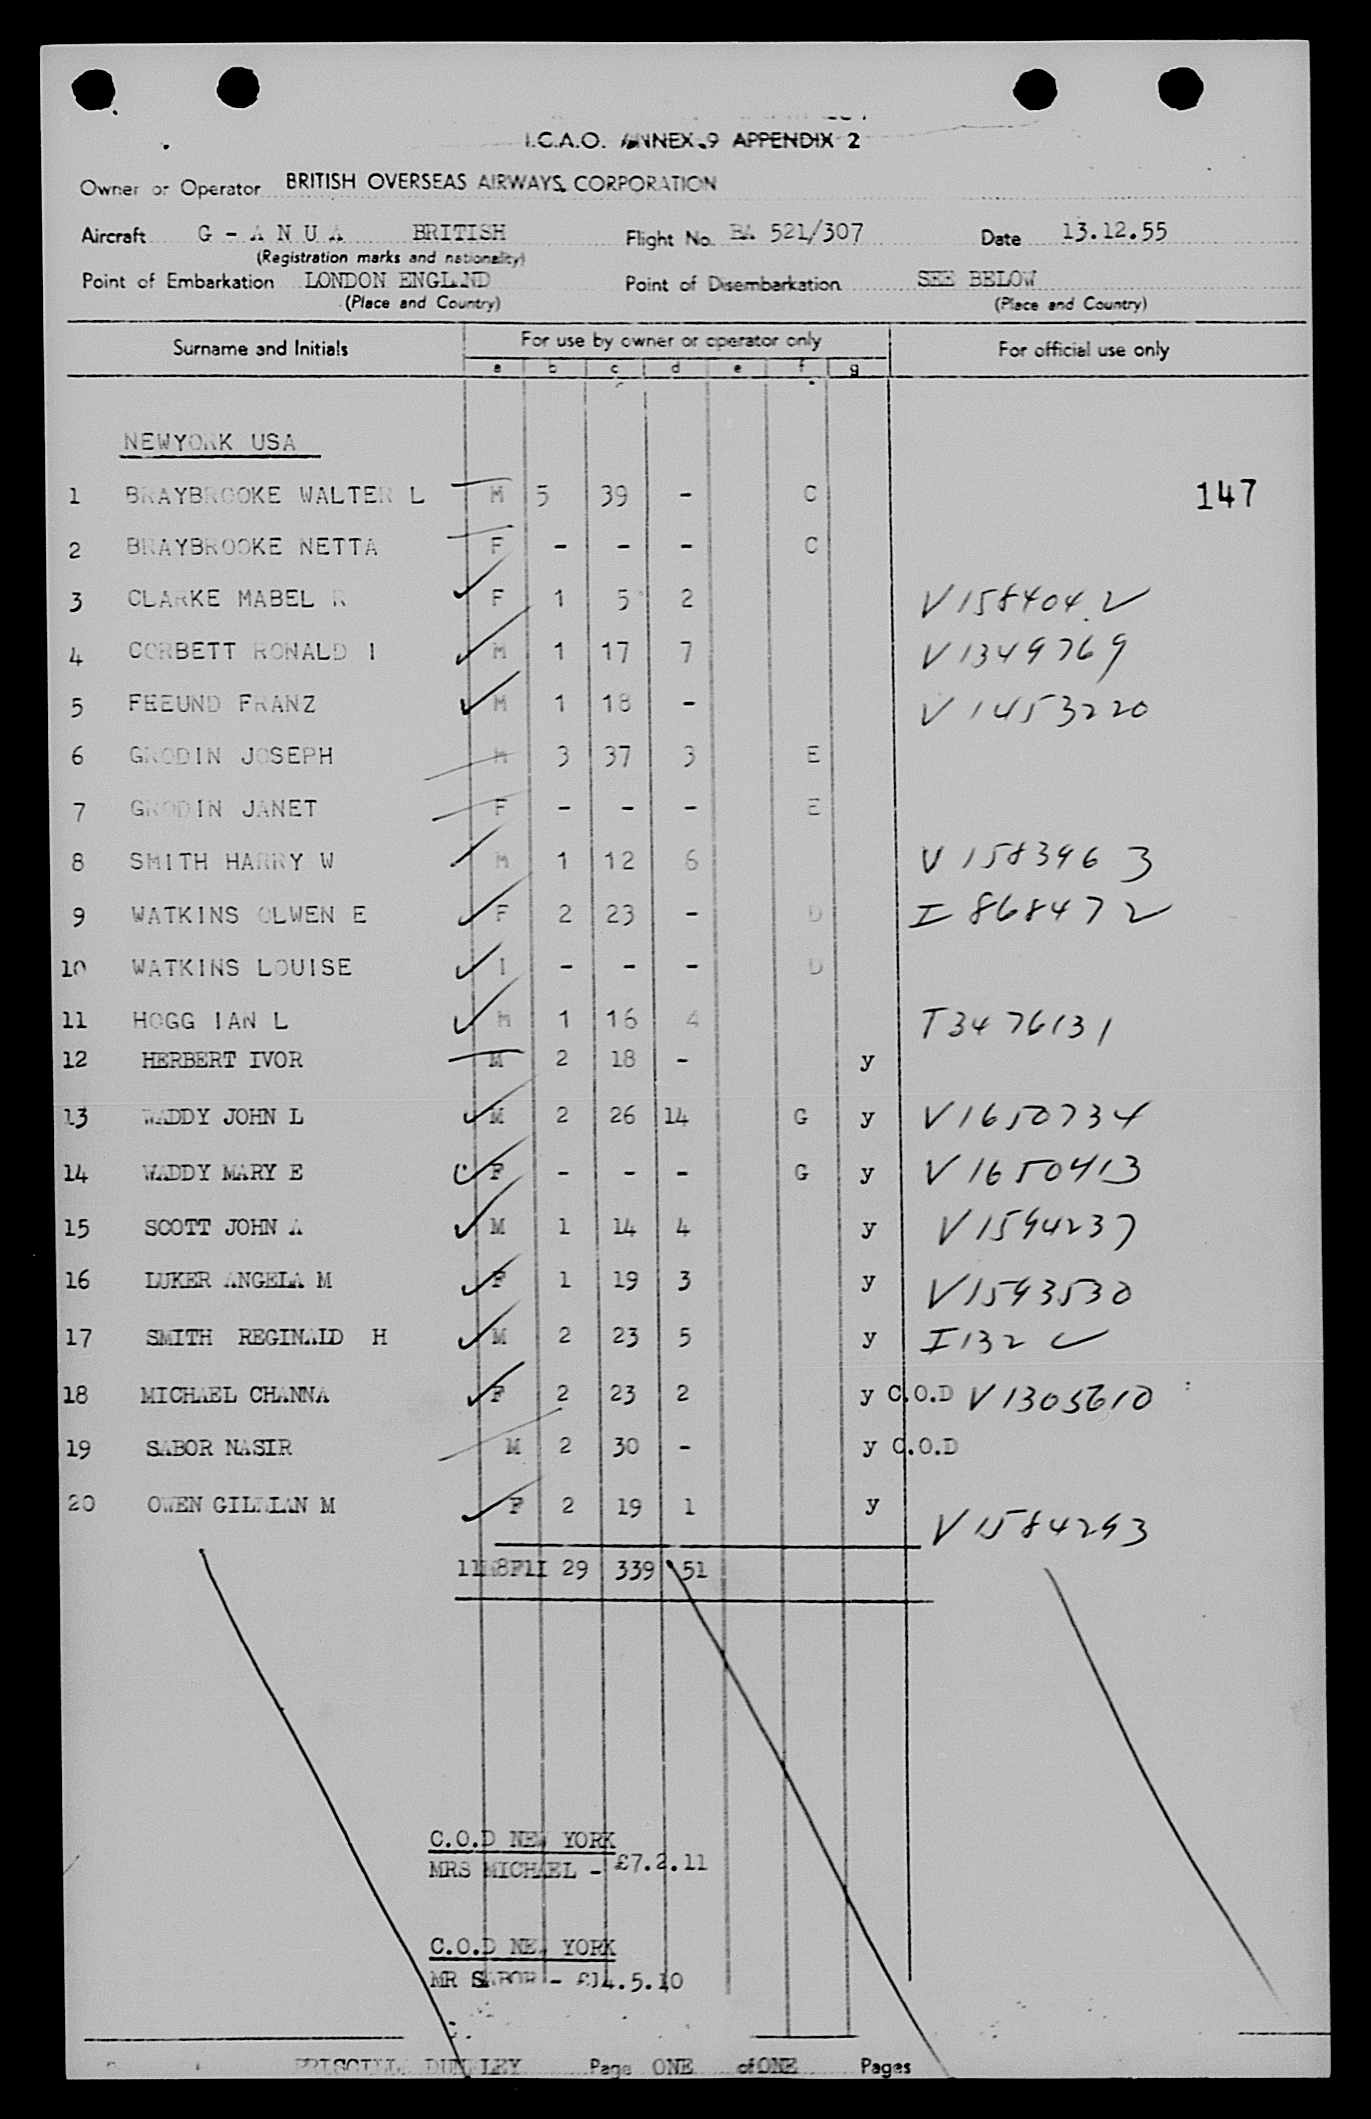 I.C.A.O. ANNEX 9 APPENDIX 2
Owner or Operator BRITISH OVERSEAS AIRWAYS CORPORATION
Aircraft G - A N U A BRITISH Flight No. BA 521/307 Date 13.12.55
(Registration marks and nationality)
Point of Embarkation LONDON ENGLAND Point of Disembarkation SEE BELOW
(Place and Country) (Place and Country)
Surname and Initials For use by owner or operator only For official use only
a b c d e f g
NEWYORK USA
1 BRAYBROOKE WALTER L M 5 39 - C 147
2 BRAYBROOKE NETTA F - - - C
3 CLARKE MABEL R F 1 5 2 V1584042
4 CORBETT RONALD I M 1 17 7 V1349769
5 FEEUND FRANZ M 1 18 - V1453220
6 GRODIN JOSEPH M 3 37 3 E
7 GRODIN JANET F - - - E
8 SMITH HARRY W M 1 12 6 V1583963
9 WATKINS OLWEN E F 2 23 - D I868472
10 WATKINS LOUISE I - - - D
11 HOGG IAN L M 1 16 4 T3476131
12 HERBERT IVOR M 2 18 - y
13 WADDY JOHN L M 2 26 14 G y V1650734
14 WADDY MARY E F - - - G y V1650413
15 SCOTT JOHN A M 1 14 4 y V1594237
16 LUKER ANGELA M F 1 19 3 y V1593530
17 SMITH REGINALD H M 2 23 5 y I132
18 MICHAEL CHANNA F 2 23 2 y C.O.D V1305610
19 SABOR NASIR M 2 30 - y C.O.D
20 OWEN GILLIAN M F 2 19 1 y V1584293
11M8F1I 29 339 51
C.O.D NEW YORK
MRS MICHAEL - £7.2.11
C.O.D NEW YORK
MR SABOR - £14.5.10
Page ONE of ONE Pages